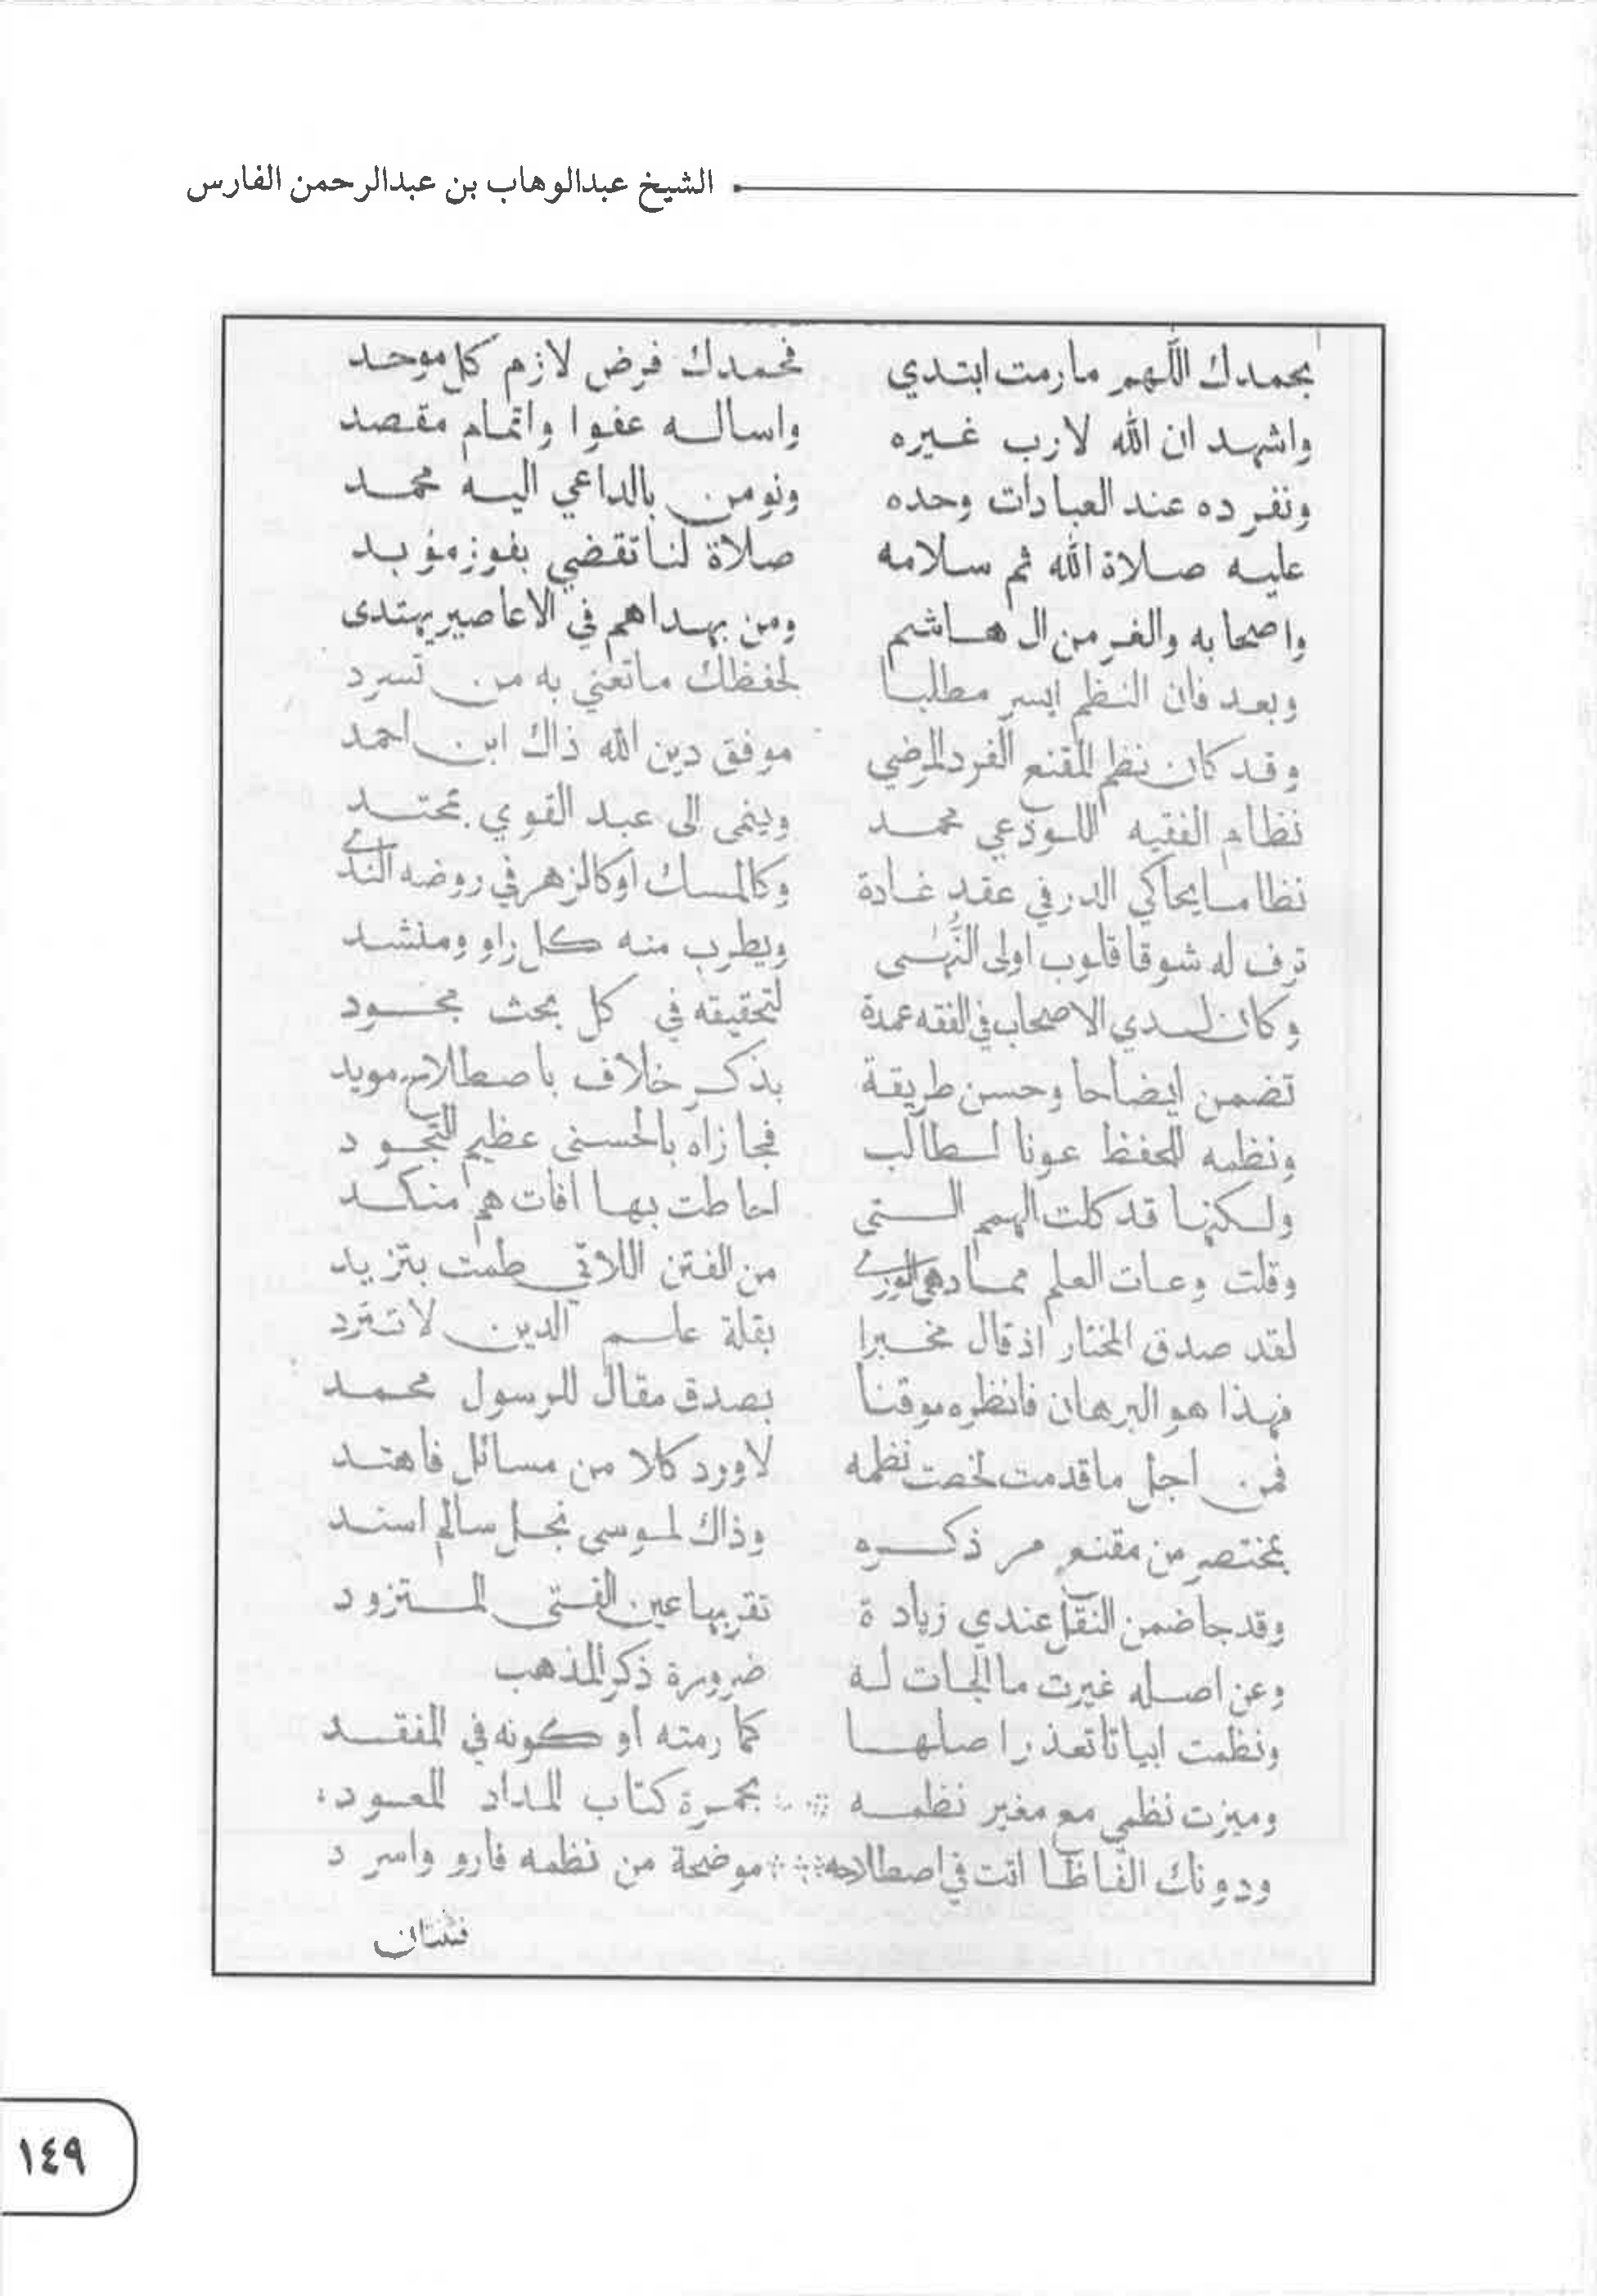 الشيخ عبدالوهاب بن عبدالرحمن الفارس
بحمدك اللهم ما رمت ابتدي فحمدك فرض لازم كل موحد
واشهد ان الله لا رب غيره واساله عفوا واتمام مقصد
ونفرده عند العبادات وحده ونومن بالداعي اليه محمد
عليه صلاة الله ثم سلامه صلاة لنا تقضي بفوز مؤبد
واصحابه والغر من ال هاشم ومن بهداهم في الاعاصير يهتدى
وبعد فان النظم ايسر مطلبا لحفظك ما تعني به من تسرد
وقد كان نظم المقنع الفرد المرضي موفق دين الله ذاك ابن احمد
نظام الفقيه اللوذعي محمد وينمى الى عبد القوي بمحتد
نظاما يحاكي الدر في عقد غادة وكالمسك او كالزهر في روضه الندي
ترف له شوقا قلوب اولى النُّهى ويطرب منه كل راو ومنشد
وكان لدي الاصحاب في الفقه عمدة لتحقيقه في كل بحث مجود
تضمن ايضاحا وحسن طريقة بذكر خلاف باصطلاح مويد
ونظمه للحفظ عونا لطالب فجازاه بالحسنى عظيم التجود
ولكنها قد كلت الهمم التي احاطت بها افات هم منكد
وقلت وعات العلم مما دهى الورى من الفتن اللاتي طمت بتزيد
لقد صدق المختار اذ قال مخبرا بقلة علم الدين لا تترد
فهذا هو البرهان فانظره موقنا بصدق مقال للرسول محمد
فمن اجل ما قدمت لخصت نظمه لاورد كلا من مسائل فاهتد
بمختصر من مقنع مر ذكره وذاك لموسى نجل سالم اسند
وقد جا ضمن النقل عندي زيادة تقر بها عين الفتى المتزود
وعن اصله غيرت ما الجات له ضرورة ذكر المذهب
ونظمت ابياتا تعذر اصلها كما رمته او كونه في المفقد
وميزت نظمي مع مغير نظمه بحمرة كتاب المداد المعود
ودونك الفاظا اتت في اصطلاحه موضحة من نظمه فارو واسرد
١٤٩